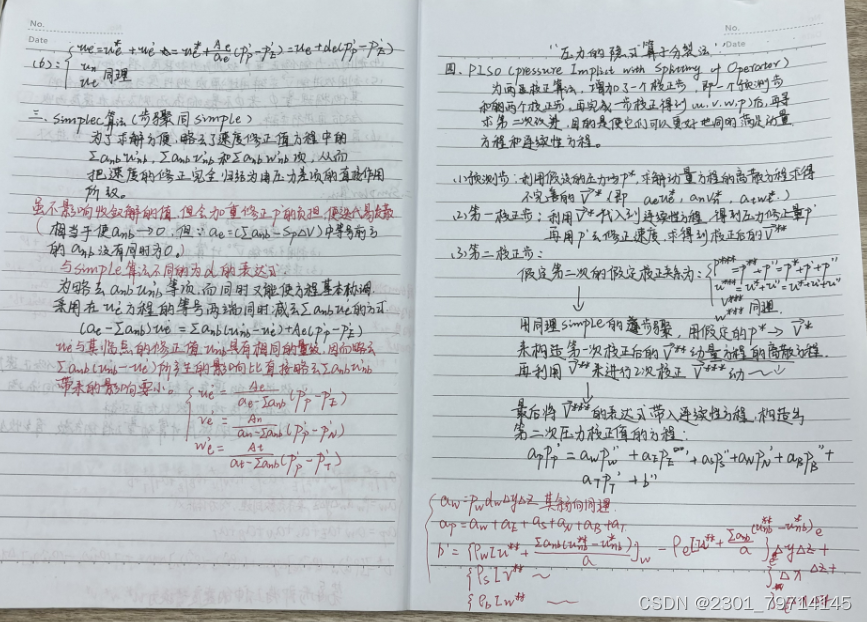 No.
Date
(b): { ue = ue* + ue' = ue* + Ae/ae (pp' - pE') = ue + de(pp' - pE')
同理
三. Simplec算法 (步骤同simple)
为了求解方便, 略去了速度修正值方程中的
Σanb u'nb, Σanb v'nb 和 Σanb w'nb 项, 从而
把速度的修正完全归结为由压力差项的直接作用
所致。
虽不影响收敛解的值, 但会加重修正p'的负担, 使迭代易发散
(相当于使anb→0, 但∵ ae = (Σanb - SpΔV) 中等号前后
的 anb 没有同时为0。)
与simple算法不同的为d的表达式
为略去 anb u'nb 等项, 而同时又能使方程基本协调
采用在 ue' 方程的等号两端同时减去 Σanb ue' 的方式
(ae - Σanb) ue' = Σanb(u'nb - ue') + Ae(pp' - pE')
ue' 与其临点的修正值 u'nb 具有相同的量级, 因而略去
Σanb(u'nb - ue') 所产生的影响比直接略去 Σanb u'nb
带来的影响要小。
{ ue' = Ae/(ae - Σanb) (pp' - pE')
ve' = An/(an - Σanb) (pp' - pN')
we' = At/(at - Σanb) (pp' - pT')
No.
Date
"压力的隐式算子分裂法"
四. PISO (pressure Implicit with Splitting of Operator)
为两函校正算法, 增加了一个校正步, 即一个预测步
和两个校正步, 再完成一步校正得到(u.v.w.p)后, 再寻
求第二次改进, 目的是使它们可以更好地同时满足动量
方程和连续性方程。
(1) 预测步: 利用假设的压力场p*, 求解动量方程的离散方程求得
不完善的 V* (即 ae ue*, an vn*, at wt*)
(2) 第一校正步: 利用V*代入到连续性方程, 得到压力修正量p'
再用p'去修正速度, 求得到校正后的V**
(3) 第二校正步:
假定第二次的假定校正关系为: { p*** = p** + p'' = p* + p' + p''
u*** = u** + u'' = u* + u' + u''
v***
w*** 同理
↓
用同理simple的步骤, 用假定的p* → V*
来构造第一次校正后的V**动量方程的离散方程.
再利用V**来进行2次校正 V***动~
↓
最后将V***的表达式带入连续性方程, 构造出
第二次压力校正值的方程:
aP pP' = aW pW'' + aE pE'' + aS pS'' + aN pN' + aB pB'' +
aT pT' + b''
{ aW = ρw dw Δy Δz 其余方向同理
aP = aW + aE + aS + aN + aB + aT
b'' = { ρw[u** + Σanb(u**nb - u*nb)/a]w - ρe[u** + Σanb(u**nb - u*nb)/a]e } Δy Δz +
{ ρs[v** ~ } Δx Δz +
{ ρb[w** ~
CSDN @2301_79714145